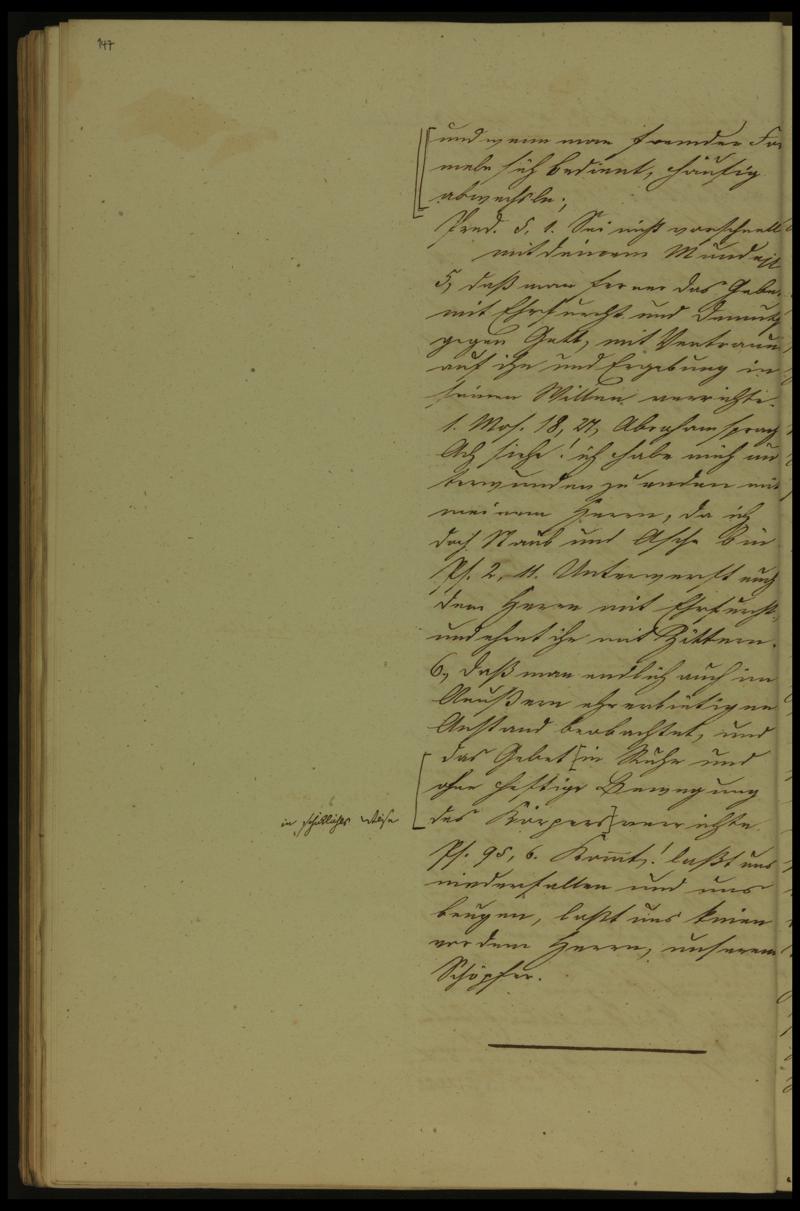 147
und wenn man fremder For
meln sich bedient, häufig
abwechsle;
Pred. 5, 1. Sei nicht vorschnell
mit deinem Munde
5, daß man ferner das Gebe
mit Ehrfurcht und Demuth
gegen Gott, mit Vertrauen
auf ihn und Ergebung in
seinen Willen verrichte.
1. Mos. 18, 27, Abraham sprach
Ach siehe! ich habe mich un
terwunden zu reden mit
meinem Herrn, da ich
doch Staub und Asche bin
Ps. 2, 11. Unterwerft euch
dem Herrn mit Ehrfurcht,
und ehret ihn mit Zittern.
6, daß man endlich auch im
Aeußern ehrerbietigen
Anstand beobachtet, und
das Gebet [in Ruhe und
ohne heftige Bewegung
des Körpers] verrichte.
in schicklicher Weise
Ps. 95, 6. Kommt! laßt uns
niederfallen und uns
beugen, laßt uns knien
vor dem Herrn, unserem
Schöpfer.